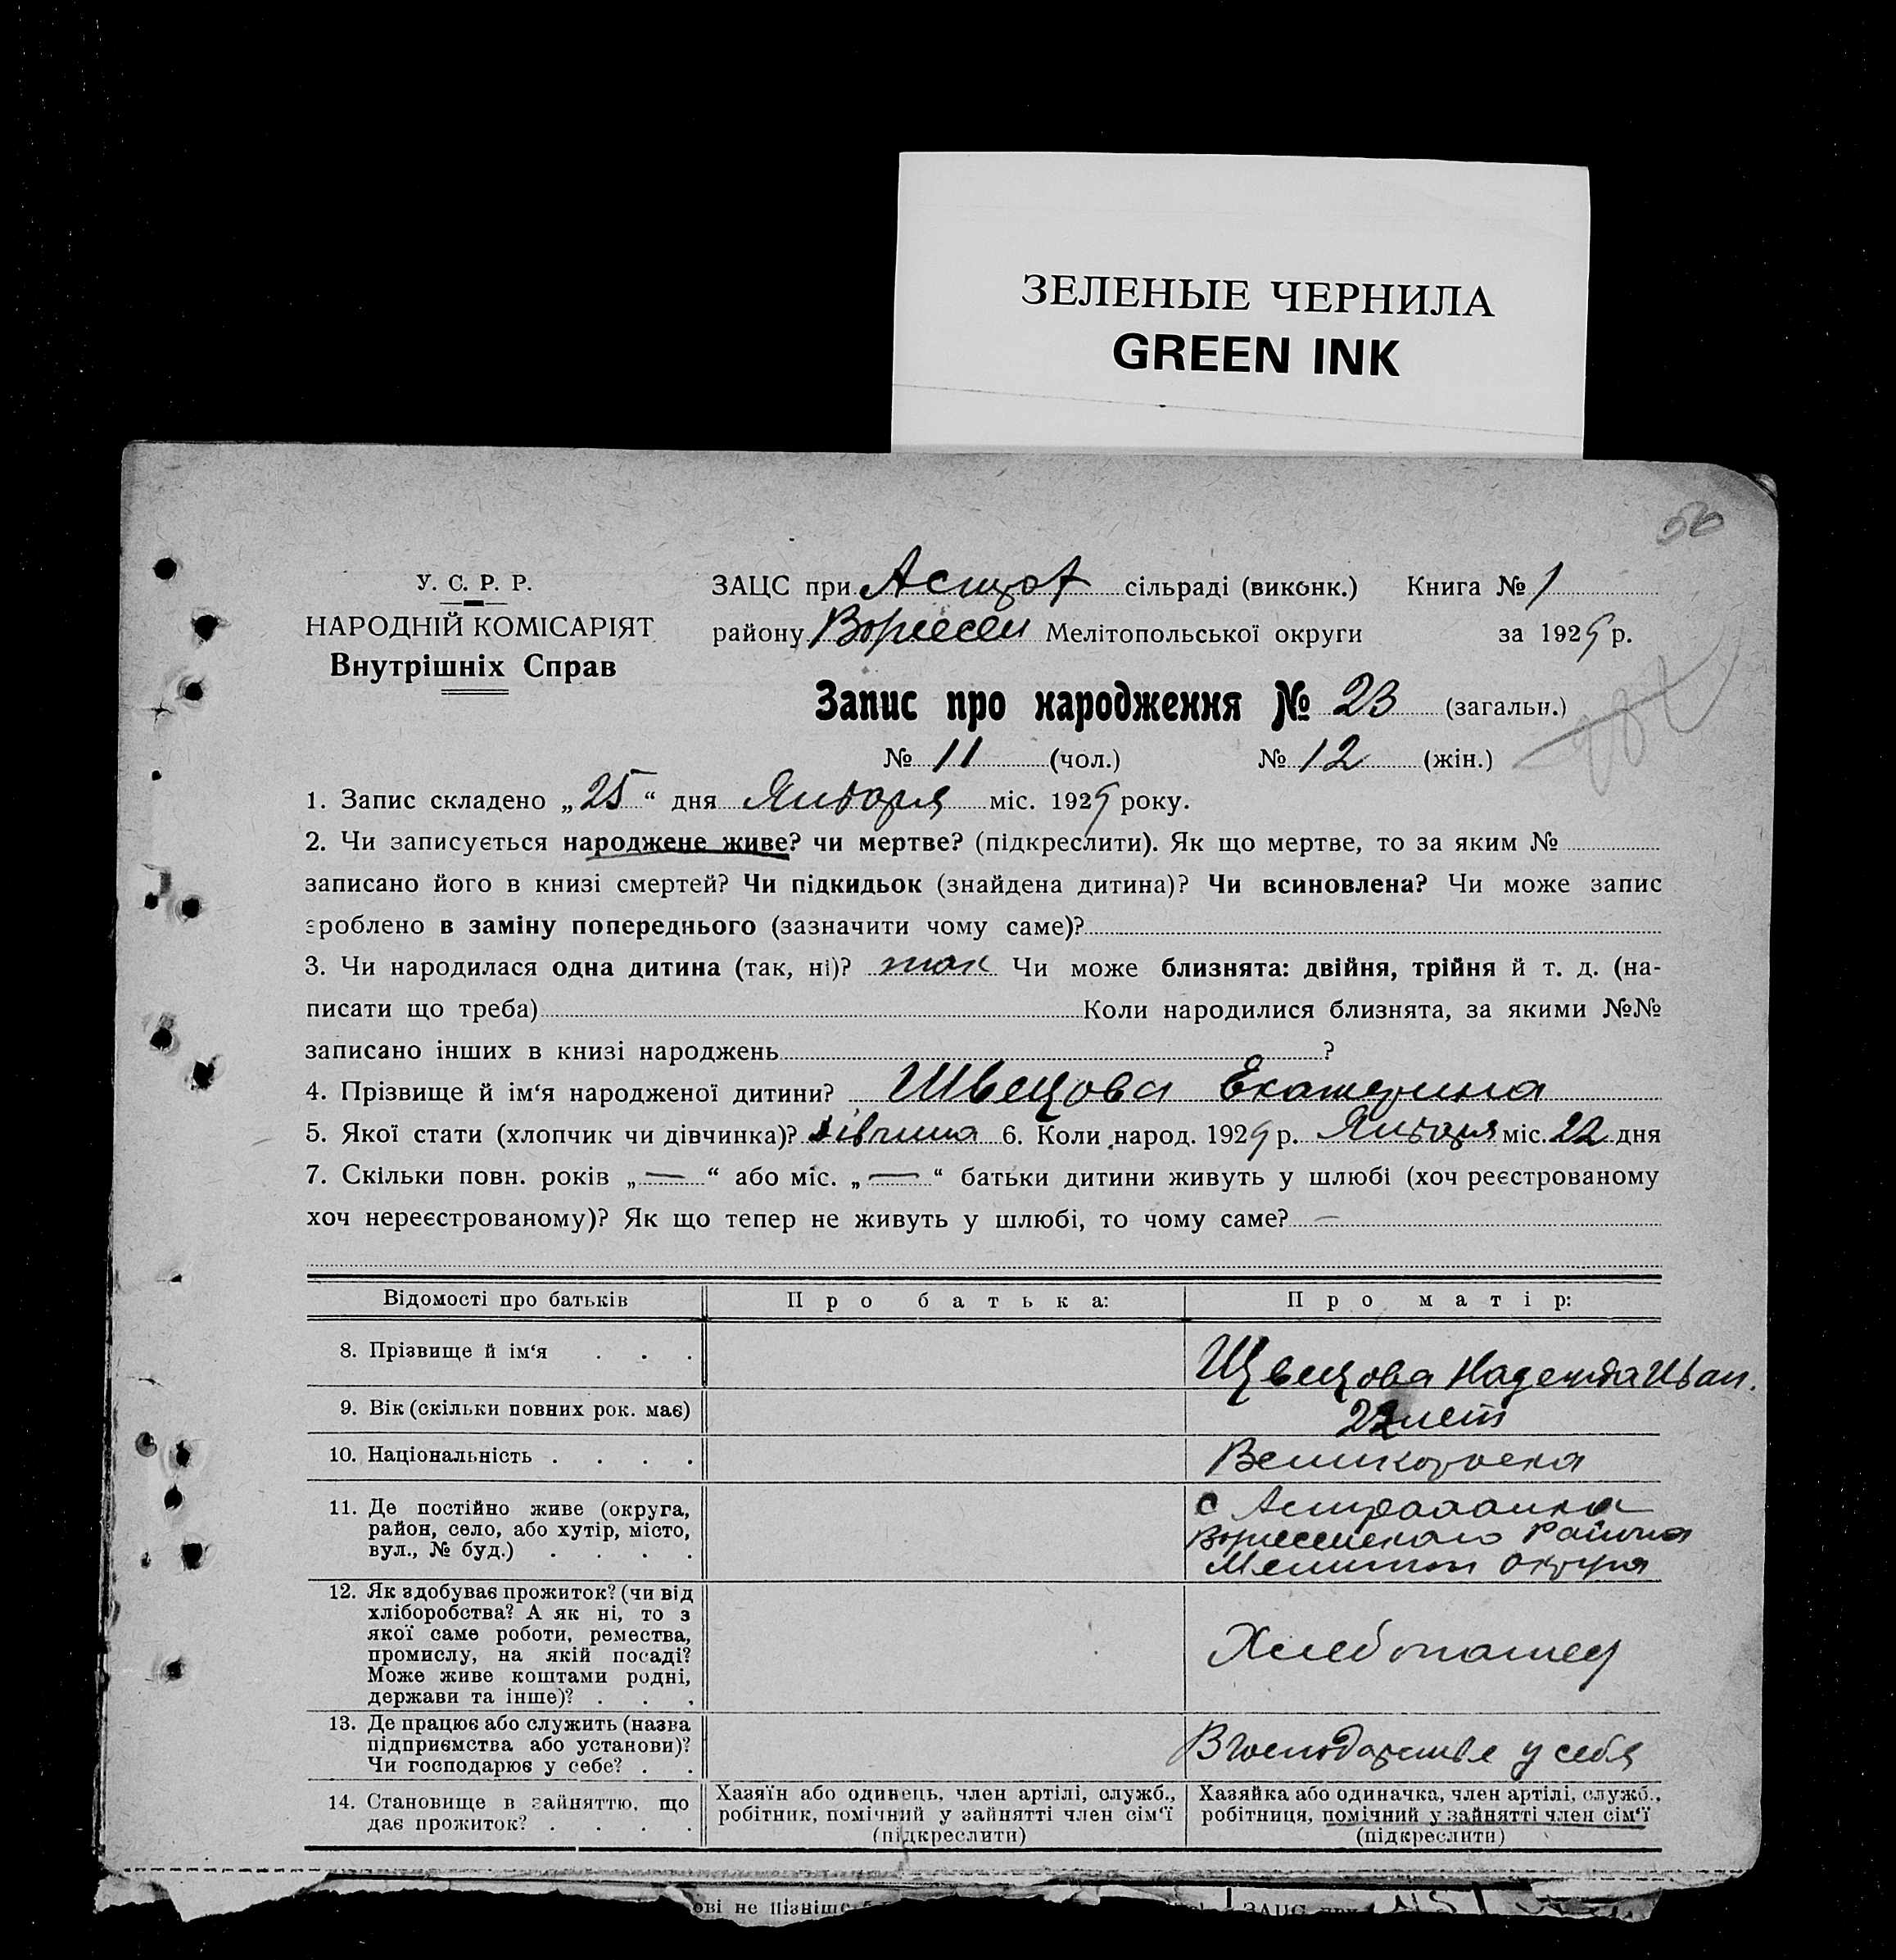 ЗЕЛЕНЫЕ ЧЕРНИЛА
GREEN INK
У. С. Р. Р.
НАРОДНІЙ КОМІСАРІЯТ
Внутрішніх Справ
ЗАЦС при сільраді (виконк.) Книга № 1
району Мелітопольської округи за 1929 р.
Запис про народження № 23 (загальн.)
№ 11 (чол.) № 12 (жін.)
1. Запис складено „25“ дня Января міс. 1929 року.
2. Чи записується народжене живе? чи мертве? (підкреслити). Як що мертве, то за яким №
записано його в книзі смертей? Чи підкидьок (знайдена дитина)? Чи всиновлена? Чи може запис
зроблено в заміну попереднього (зазначити чому саме)?
3. Чи народилася одна дитина (так, ні)? так Чи може близнята: двійня, трійня й т. д. (на-
писати що треба) Коли народилися близнята, за якими №№
записано інших в книзі народжень ?
4. Прізвище й ім‘я народженої дитини? Швецова Екатерина
5. Якої стати (хлопчик чи дівчинка)? дівчина 6. Коли народ. 1929 р. Января міс. 22 дня
7. Скільки повн. років „—“ або міс. „—“ батьки дитини живуть у шлюбі (хоч реєстрованому
хоч нереєстрованому)? Як що тепер не живуть у шлюбі, то чому саме? —
Відомості про батьків Про батька: Про матір:
8. Прізвище й ім‘я . . . Швецова Надежда Иван.
9. Вік (скільки повних рок. має) 22 лет
10. Національність . . . . Великороска
11. Де постійно живе (округа, район, село, або хутір, місто, вул., № буд.) . . . .
с Астраханка
Района
Мелитоп Округа
12. Як здобуває прожиток? (чи від хліборобства? А як ні, то з якої саме роботи, ремества, промислу, на якій посаді? Може живе коштами родні, держави та інше)? . . .
Хлебопашец
13. Де працює або служить (назва підприємства або установи)? Чи господарює у себе? . .
В господарстве у себя
14. Становище в зайняттю, що дає прожиток? . . . .
Хазяїн або одинець, член артілі, служб., робітник, помічний у зайнятті член сім‘ї (підкреслити)
Хазяйка або одиначка, член артілі, служб., робітниця, помічний у зайнятті член сім‘ї (підкреслити)